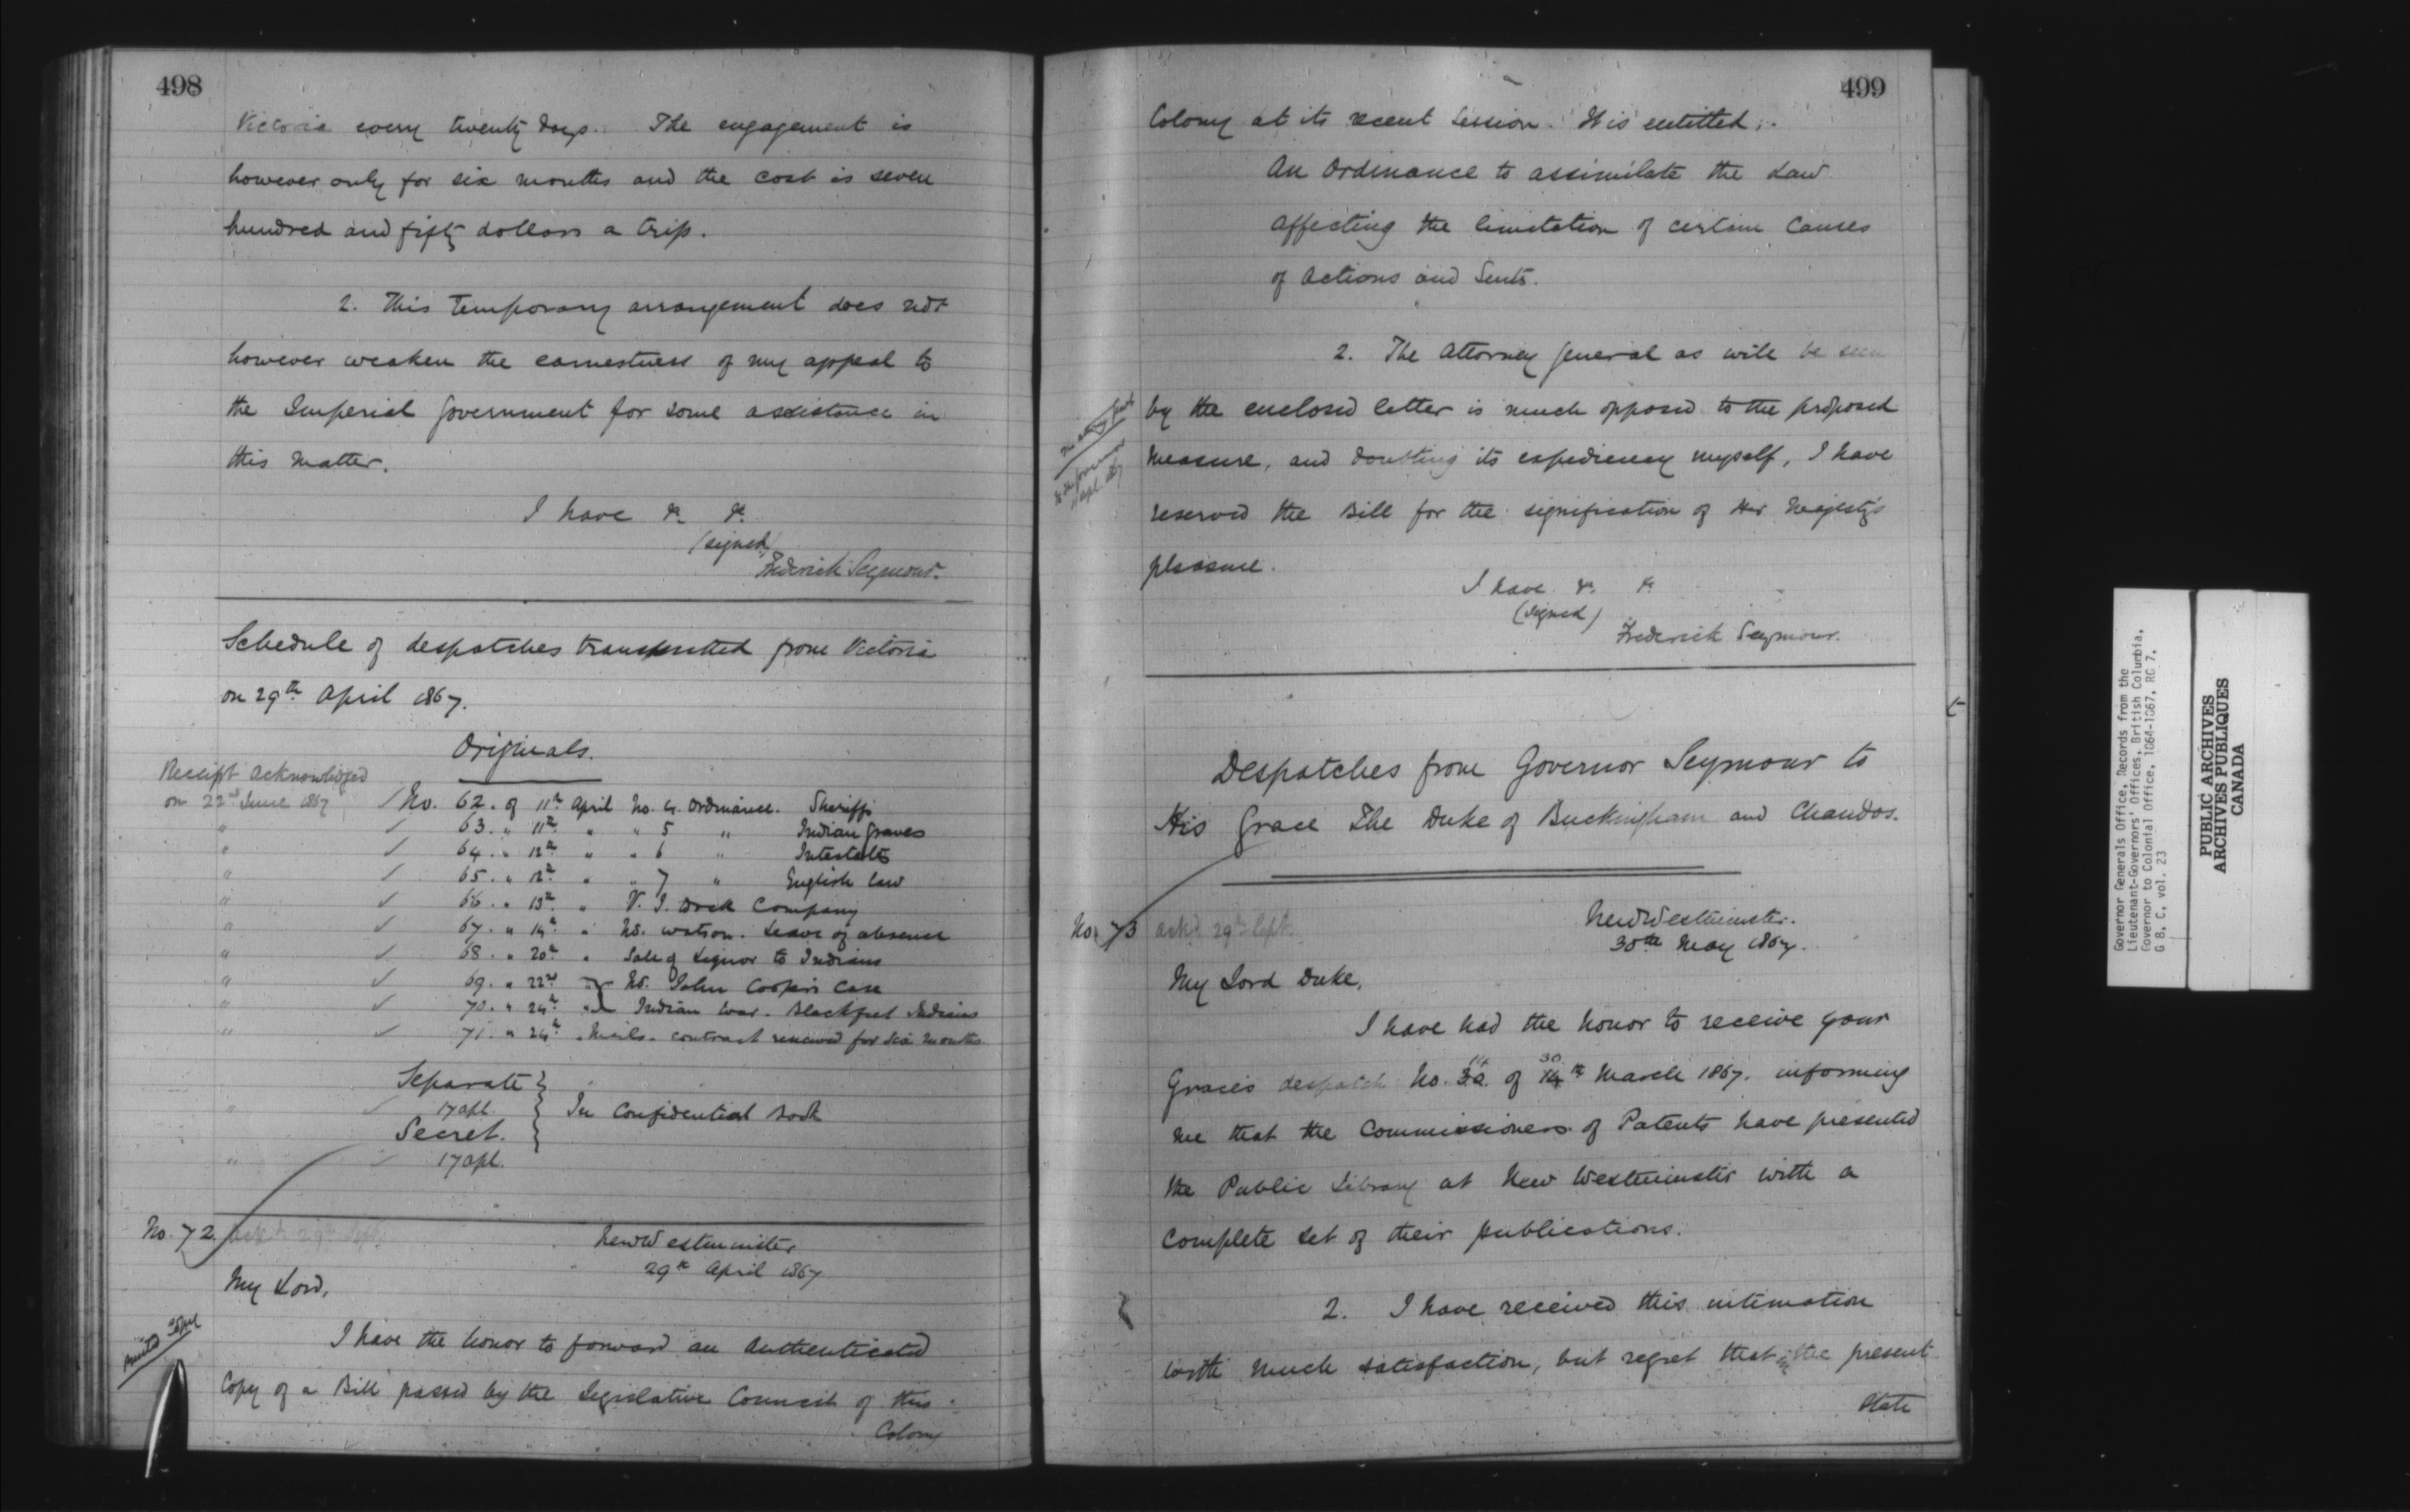 498
Victoria every twenty days. The engagement is
however only for six months and the cost is seven
hundred and fifty dollars a trip.
2. This temporary arrangement does not
however weaken the earnestness of my appeal to
the Imperial Government for some assistance in
this matter.
I have &c &c
(signed)
Frederick Seymour.
Schedule of despatches transmitted from Victoria
on 29th April 1867.
Originals.
Receipt acknowledged
on 22nd June 1867 / No. 62. of 11th April No. 4. Ordinance. Sheriffs
" / 63. " 11th " " 5 " Indian Graves
" / 64. " 12th " " 6 " Intestates
" / 65. " 12th " " 7 " English Law
" / 66. " 13th " V. I. Dock Company
" / 67. " 14th " Mr. Watson. Leave of absence
" / 68. " 20th " Sale of Liquor to Indians
" / 69. " 22nd " } Mr. John Cooper's Case
" / 70. " 24th " } Indian War. Blackfeet Indians
" / 71. " 24th " Mails. contract renewed for six months
Separate }
" / 17 apl. } In Confidential Book
Secret. }
" / 17 apl.
No. 72. ackd 29th Sept.
New Westminster
29th April 1867
My Lord,
I have the honor to forward an Authenticated
Copy of a Bill passed by the Legislative Council of this
Colony
499
Colony at its recent Session. It is entitled;.
An Ordinance to assimilate the Law
affecting the limitation of certain Causes
of Actions and Suits.
2. The Attorney General as will be seen
by the enclosed letter is much opposed to the proposed
The Attorney Genl
to the Governor
11 apl. 1867
measure, and doubting its expediency myself, I have
reserved the Bill for the signification of Her Majesty's
pleasure.
I have &c &c
(signed)
Frederick Seymour.
Despatches from Governor Seymour to
His Grace The Duke of Buckingham and Chandos.
No. 73 ackd 29th Sept.
New Westminster.
30th May 1867.
My Lord Duke,
I have had the honor to receive your
Grace's despatch No. 30. of 14th March 1867. informing
30
me that the Commissioners of Patents have presented
the Public Library at New Westminster with a
complete set of their publications.
2. I have received this intimation
with much satisfaction, but regret that in the present
State
Governor Generals Office, Records from the
Lieutenant-Governors' Offices, British Columbia,
Governor to Colonial Office, 1864-1867, RG 7,
G 8, C, vol. 23
PUBLIC ARCHIVES
ARCHIVES PUBLIQUES
CANADA